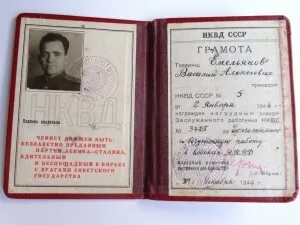 НКВД
Подпись владельца
ЧЕКИСТ ДОЛЖЕН БЫТЬ:
БЕЗЗАВЕТНО ПРЕДАННЫМ
ПАРТИИ ЛЕНИНА—СТАЛИНА,
БДИТЕЛЬНЫМ
И БЕСПОЩАДНЫМ В БОРЬБЕ
С ВРАГАМИ СОВЕТСКОГО
ГОСУДАРСТВА
НКВД СССР
ГРАМОТА
Товарищ Емельянов
Василий Алексеевич
приказом
НКВД СССР № 5
от 2 Января 1944 г.
награжден нагрудным знаком
Заслуженного работника НКВД
№ 3425 за
работу
НКВД
Народный комиссар
внутренних дел СССР
Декабря 1944 г.